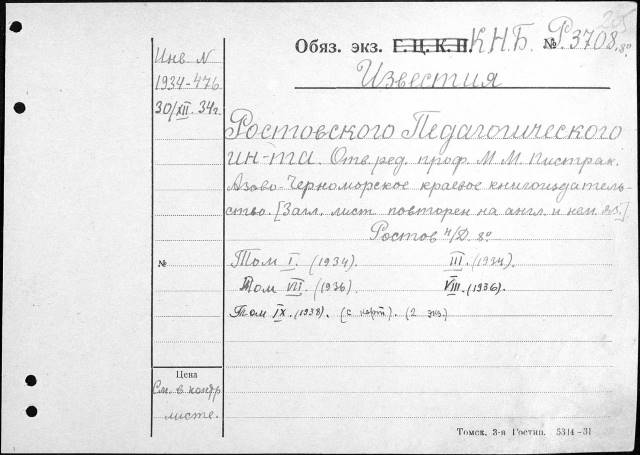 25
Обяз. экз. Г.Ц.К.П. К.Н.Б. № Р.3708, 8º
Инв N
1934-476
30/XII. 34г.
Известия
Ростовского Педагогического
ин-та. Отв. ред. проф. М. М. Пистрак.
Азово-Черноморское краевое книгоиздатель-
ство. [Загл. лист повторен на англ. и нем. яз.]
Ростов н/Д. 8º
№ Том I. (1934). III. (1934).
Том VII. (1936) VIII. (1936).
Том IX. (1938). (с карт.). (2 экз.)
Цена
См. в контр
листе.
Томск. 3-я Гостип. 5314-31